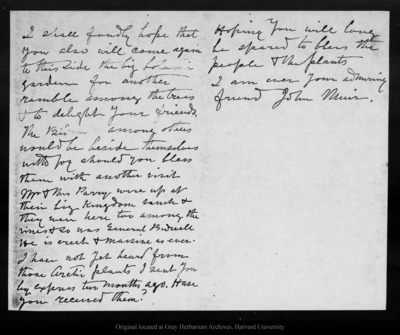 I shall fondly hope that
you also will come again
to this side the big
garden for another
ramble among the trees
& to delight your friends.
The among others
would be beside themselves
with joy should you bless
them with another visit
Mr & Mrs Parry were up at
their big Kingdom ranch &
they were here too among the
vines & so was General Bidwell
He is erect & massive as ever.
I have not yet heard from
those Arctic plants I sent you
by express two months ago. Have
you received them?
Hoping you will long
be spared to bless the
people & the plants
I am ever your admiring
friend John Muir.
Original located at Gray Herbarium Archives, Harvard University